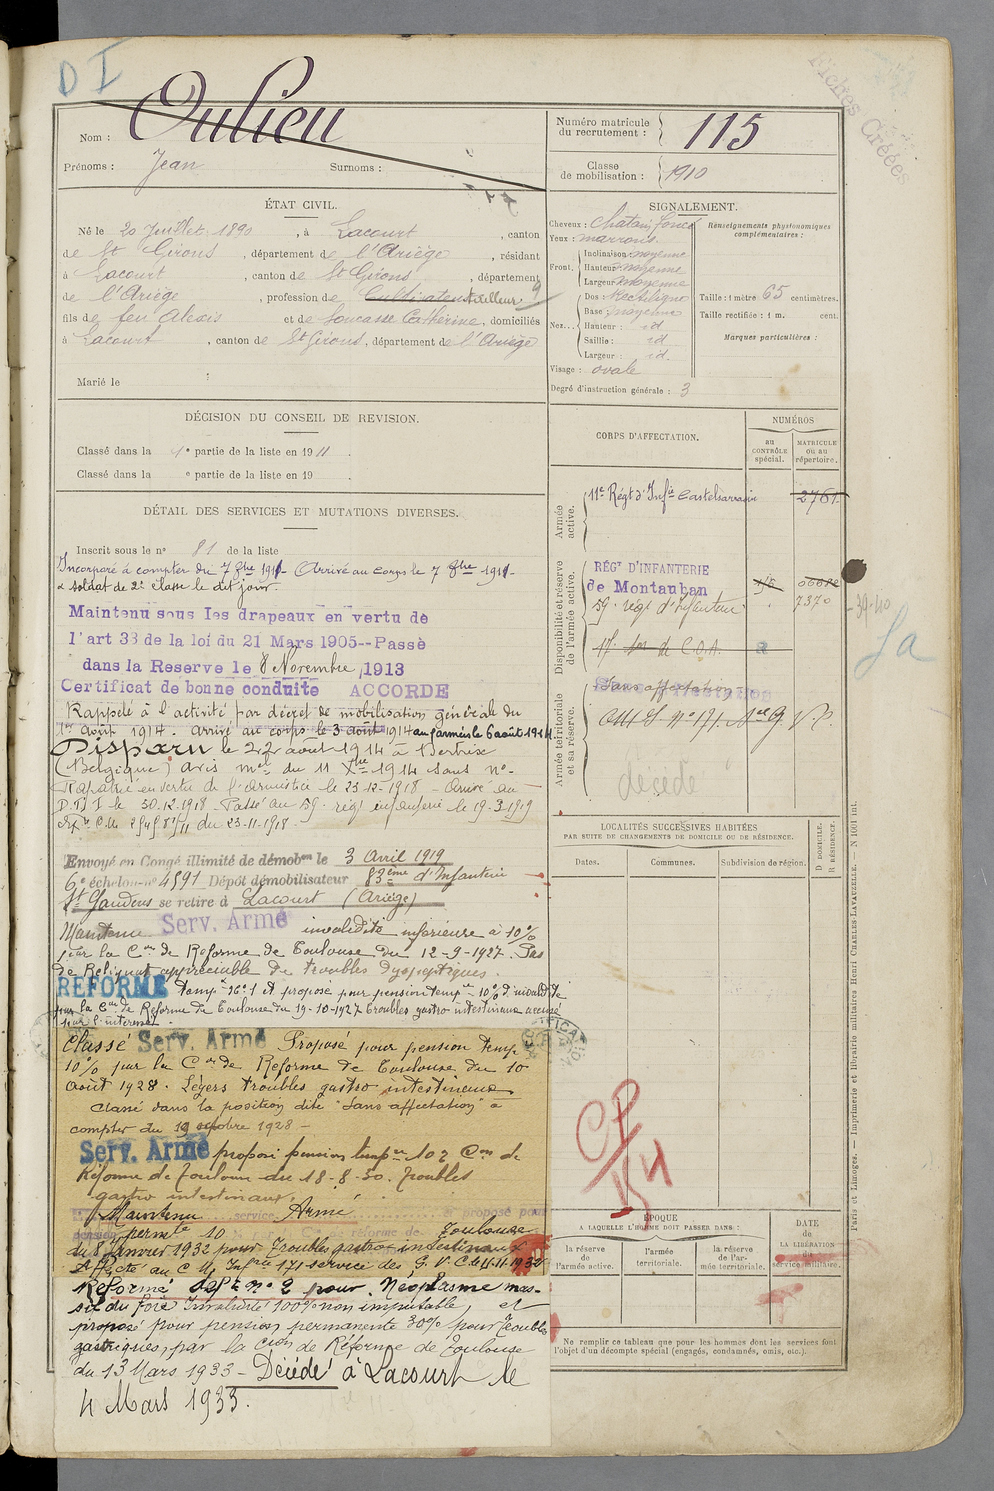 D I
Fiches Créées
Nom : Oulieu
Prénoms : Jean Surnoms :
Numéro matricule du recrutement : 115
Classe de mobilisation : 1910
ÉTAT CIVIL.
Né le 20 Juillet 1890, à Lacourt, canton
de St Girons, département de l'Ariège, résidant
à Lacourt, canton de St Girons, département
de l'Ariège, profession de Cultivateur tailleur 9
fils de feu Alexis et de Soucasse Catherine, domiciliés
à Lacourt, canton de St Girons, département de l'Ariège
Marié le
SIGNALEMENT.
Cheveux : Chatain foncé
Yeux : marrons
Front. Inclinaison moyenne
Hauteur moyenne
Largeur moyenne
Nez... Dos : Rectiligne
Base : moyenne
Hauteur : id
Saillie : id
Largeur : id.
Visage : ovale
Degré d'instruction générale : 3
Renseignements physionomiques complémentaires :
Taille : 1 mètre 65 centimètres.
Taille rectifiée : 1 m. cent.
Marques particulières :
DÉCISION DU CONSEIL DE REVISION.
Classé dans la 1e partie de la liste en 1911.
Classé dans la e partie de la liste en 19 .
DÉTAIL DES SERVICES ET MUTATIONS DIVERSES.
Inscrit sous le no 81 de la liste
Incorporé à compter du 7 8bre 1911 - Arrivé au corps le 7 8bre 1911 -
& soldat de 2e classe le dit jour.
Maintenu sous les drapeaux en vertu de
l'art 33 de la loi du 21 Mars 1905--Passé
dans la Reserve le 8 Novembre 1913
Certificat de bonne conduite ACCORDE
Rappelé à l'activité par décret de mobilisation générale du
1er août 1914. Arrivé au corps le 3 août 1914 aux armées le 6 août 1914
Disparu le 22 août 1914 à Bertrix
(Belgique) avis mel du 11 Xbre 1914 sans no -
Rapatrié en vertu de l'armistice le 23-12-1918 - Arrivé au
D.T.I le 30.12.1918 Passé au 59e régt infanterie le 19-3-1919
du 23-11-1918
Envoyé en Congé illimité de démobon le 3 Avril 1919
6e échelon-no 4591 Dépôt démobilisateur 83eme d'Infanterie
St Gaudens se retire à Lacourt (Ariège)
Maintenu Serv. Armé invalidité inférieure à 10%
par la Con de Reforme de Toulouse du 12-9-1927. Pas
de Reliquat appréciable de troubles dyspeptiques.
REFORMÉ tempre No 1 et proposé pour pension tempre 10% d'invalidité
par la Con de Reforme de Toulouse du 19-10-1927 troubles gastro intestinaux accusés
par l'interessé.
Classé Serv. Armé Proposé pour pension temp.
10% par la Con de Reforme de Toulouse du 10
Août 1928. Légers troubles gastro intestinaux
classé dans la position dite "sans affectation" à
compter du 19 octobre 1928 -
Serv. Armé proposé pension tempre 10% Con de
Réforme de Toulouse du 18-8-30. Troubles
gastro intestinaux.
Maintenu service Armé et proposé pour
pension permte 10 réforme de Toulouse
du 8 Janvier 1932 pour Troubles gastro-intestinaux
Affecté au C M Infrie 171 service des G.V.C. le 11-11-1932
Réformé deft no 2 pour. Néoplasme mas-
sif du foie Invalidité 100% non imputable, et
proposé pour pension permanente 30% pour Troubles
gastriques, par la Cion de Réforme de Toulouse
du 13 Mars 1933 - Décédé à Lacourt le
4 Mars 1933.
CORPS D'AFFECTATION.
NUMÉROS
au CONTRÔLE spécial.
MATRICULE ou au répertoire.
Armée active.
11e Régt d'Infie Castelsarrasin 2761
Disponibilité et réserve de l'armée active.
RÉGt D'INFANTERIE
de Montauban
59e régt d'Infanterie 7370
17e Son de C.O.A.
Armée territoriale et sa réserve.
Sans affectation
décédé
39-40
LOCALITÉS SUCCESSIVES HABITÉES
PAR SUITE DE CHANGEMENTS DE DOMICILE OU DE RÉSIDENCE.
Dates. Communes. Subdivision de région. D DOMICILE. R RÉSIDENCE.
CP
154
ÉPOQUE
A LAQUELLE L'HOMME DOIT PASSER DANS :
la réserve de l'armée active.
l'armée territoriale.
la réserve de l'armée territoriale.
DATE de LA LIBÉRATION du service militaire.
Ne remplir ce tableau que pour les hommes dont les services font
l'objet d'un décompte spécial (engagés, condamnés, omis, etc.).
Paris et Limoges. — Imprimerie et librairie militaires Henri CHARLES-LAVAUZELLE. — N 1001 int.